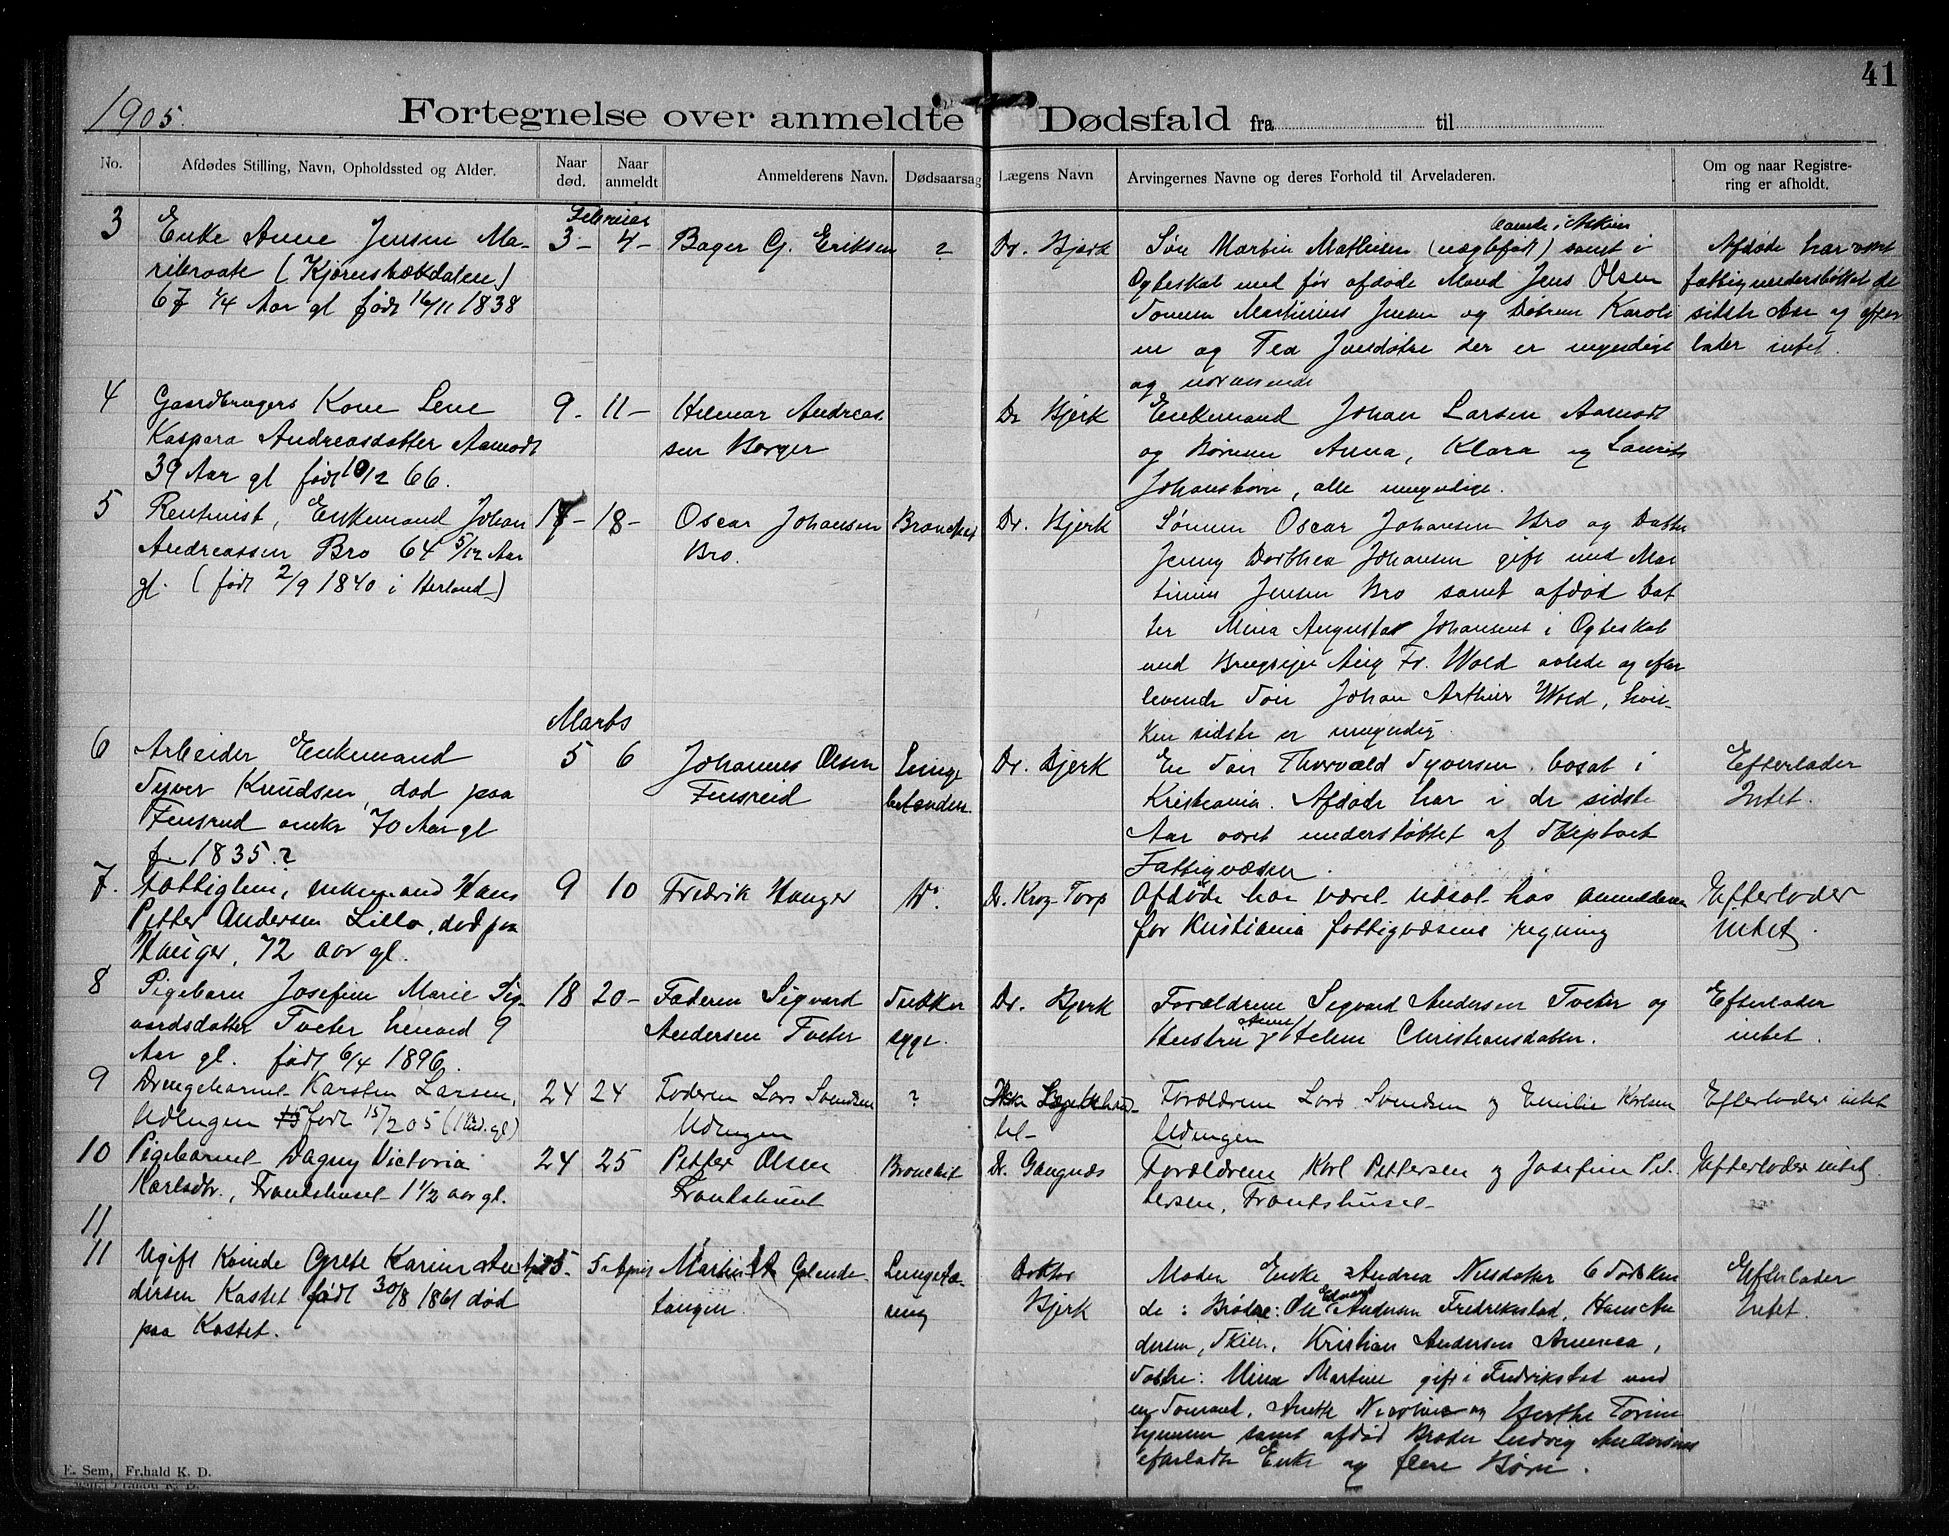 41
1905.
Fortegnelse over anmeldte Dødsfald fra til
No.
Afdødes Stilling, Navn, Opholdssted og Alder.
Naar død.
Naar anmeldt
Anmelderens Navn.
Dødsaarsag
Lægens Navn
Arvingernes Navne og deres Forhold til Arveladeren.
Om og naar Registre-
ring er afholdt.
Februar
3
Enke Anne Jensen Ma-
(Kjørnsbækdalen)
67 1/4 Aar gl født 16/11 1838
3- 4-
Bager G. Eriksen
?
Dr. Bjerk
Søn Martin Mathisen (uægtefød) samt i
Ogteskab med før afdøde Mand Jens Olsen
Sønnen Martinius Jensen og Døtrene Karoli
ne og Tea Jensdøtre der er myndige
og nærværende
Afdøde har vært
fattigunderstøttet de
sidste Aar og efter
lader intet.
4
Gaardbrugers Kone Lene
Kaspara Andreasdatter Aamodt
39 Aar gl født 10/2 66.
9- 11-
Hilmar Andreas-
sen Berger
Dr Bjerk
Enkemand Johan Larsen Aamodt
og Børnene Anna, Klara og Laurits
Johansbørn, alle umyndige.
5
Rentenist, Enkemand Johan
Andreassen Bro 64 5/12 Aar
gl. (født 2/9 1840 i Herland)
17- 18-
Oscar Johansen
Bro.
Bronchit
Dr. Bjerk
Sønnen Oscar Johansen Bro og Datter
Jenny Dorthea Johansen gift med Mar
tinius Jensen Bro samt afdød Dat
ter Mina Augusta Johansens i Ogteskab
med Brugseier Aug Fr. Wold avlede og efter
levende Søn Johan Arthur Wold, hvil-
ken sidste er umyndig.
Marts
6
Arbeider Enkemand
Syver Knudsen, død paa
Fensrud omkr 70 Aar gl
f 1835.?
5 6
Johannes Olsen
Fensrud
Lunge
betendelse
Dr. Bjerk
En Søn Thorvald Syversen bosat i
Kristiania. Afdøde har i de sidste
Aar været understøttet af Skiptvet
Fattigvæsen.
Efterlader
Intet.
7.
Fattiglem, enkemand Hans
Petter Andersen Lillo, død paa
Hauger, 72 aar gl.
9 10
Fredrik Hauger
Dr. Krog Torp
Afdøde har været udsat hos anmelderen
for Kristiania fattigvæsens regning
Efterlader
intet.
8
Pigebarn Josefine Marie Sig-
vardsdatter Tveter henved 9
Aar gl. født 6/4 1896.
18 20-
Faderen Sigvard
Andersen Tveter
syge.
Dr. Bjerk
Forældrene Sigvard Andersen Tveter og
Hustru Anne Helene Christiansdatter.
Efterlader
intet.
9
Drengebarnet Karsten Larsen,
Udengen født 15/2 05
24 24
Faderen Lars Svendsen
Udengen
?
Forældrene Lars Svendsen og Emilie Karlsen
Udengen
Efterlader intet
10
Pigebarnet Dagny Victoria
Karlsdtr., Frantshuset 1 1/2 aar gl.
24 25
Petter Olsen
Frantshuset
Bronchit
Dr. Gangnæs
Forældrene Karl Pettersen og Josefine Pet
tersen, Frantshuset
Efterlader intet.
11
11
Ugift Kvinde Grete Karine An
dersen Kastet født 30/8 1861 død
paa Kastet.
5 April
Glende-
tangen.
Lungetæ-
ring
Doktor
Bjerk
Moder Enke Andrea Nilsdatter 6 Sødsken
de: Brødre: Ole Edvard Andersen Fredrikstad, Hans An
dersen, Kristian Andersen America,
Søstre: Mina Martine gift i Fredrikstad med
en Sømand, Anette Nicoline og Berthe Torine
hjemme samt afdød Broder Ludvig Andersens
efterladte Enke og flere Børn.
Efterlader
Intet.
E. Sem, Fr.hald K. D.